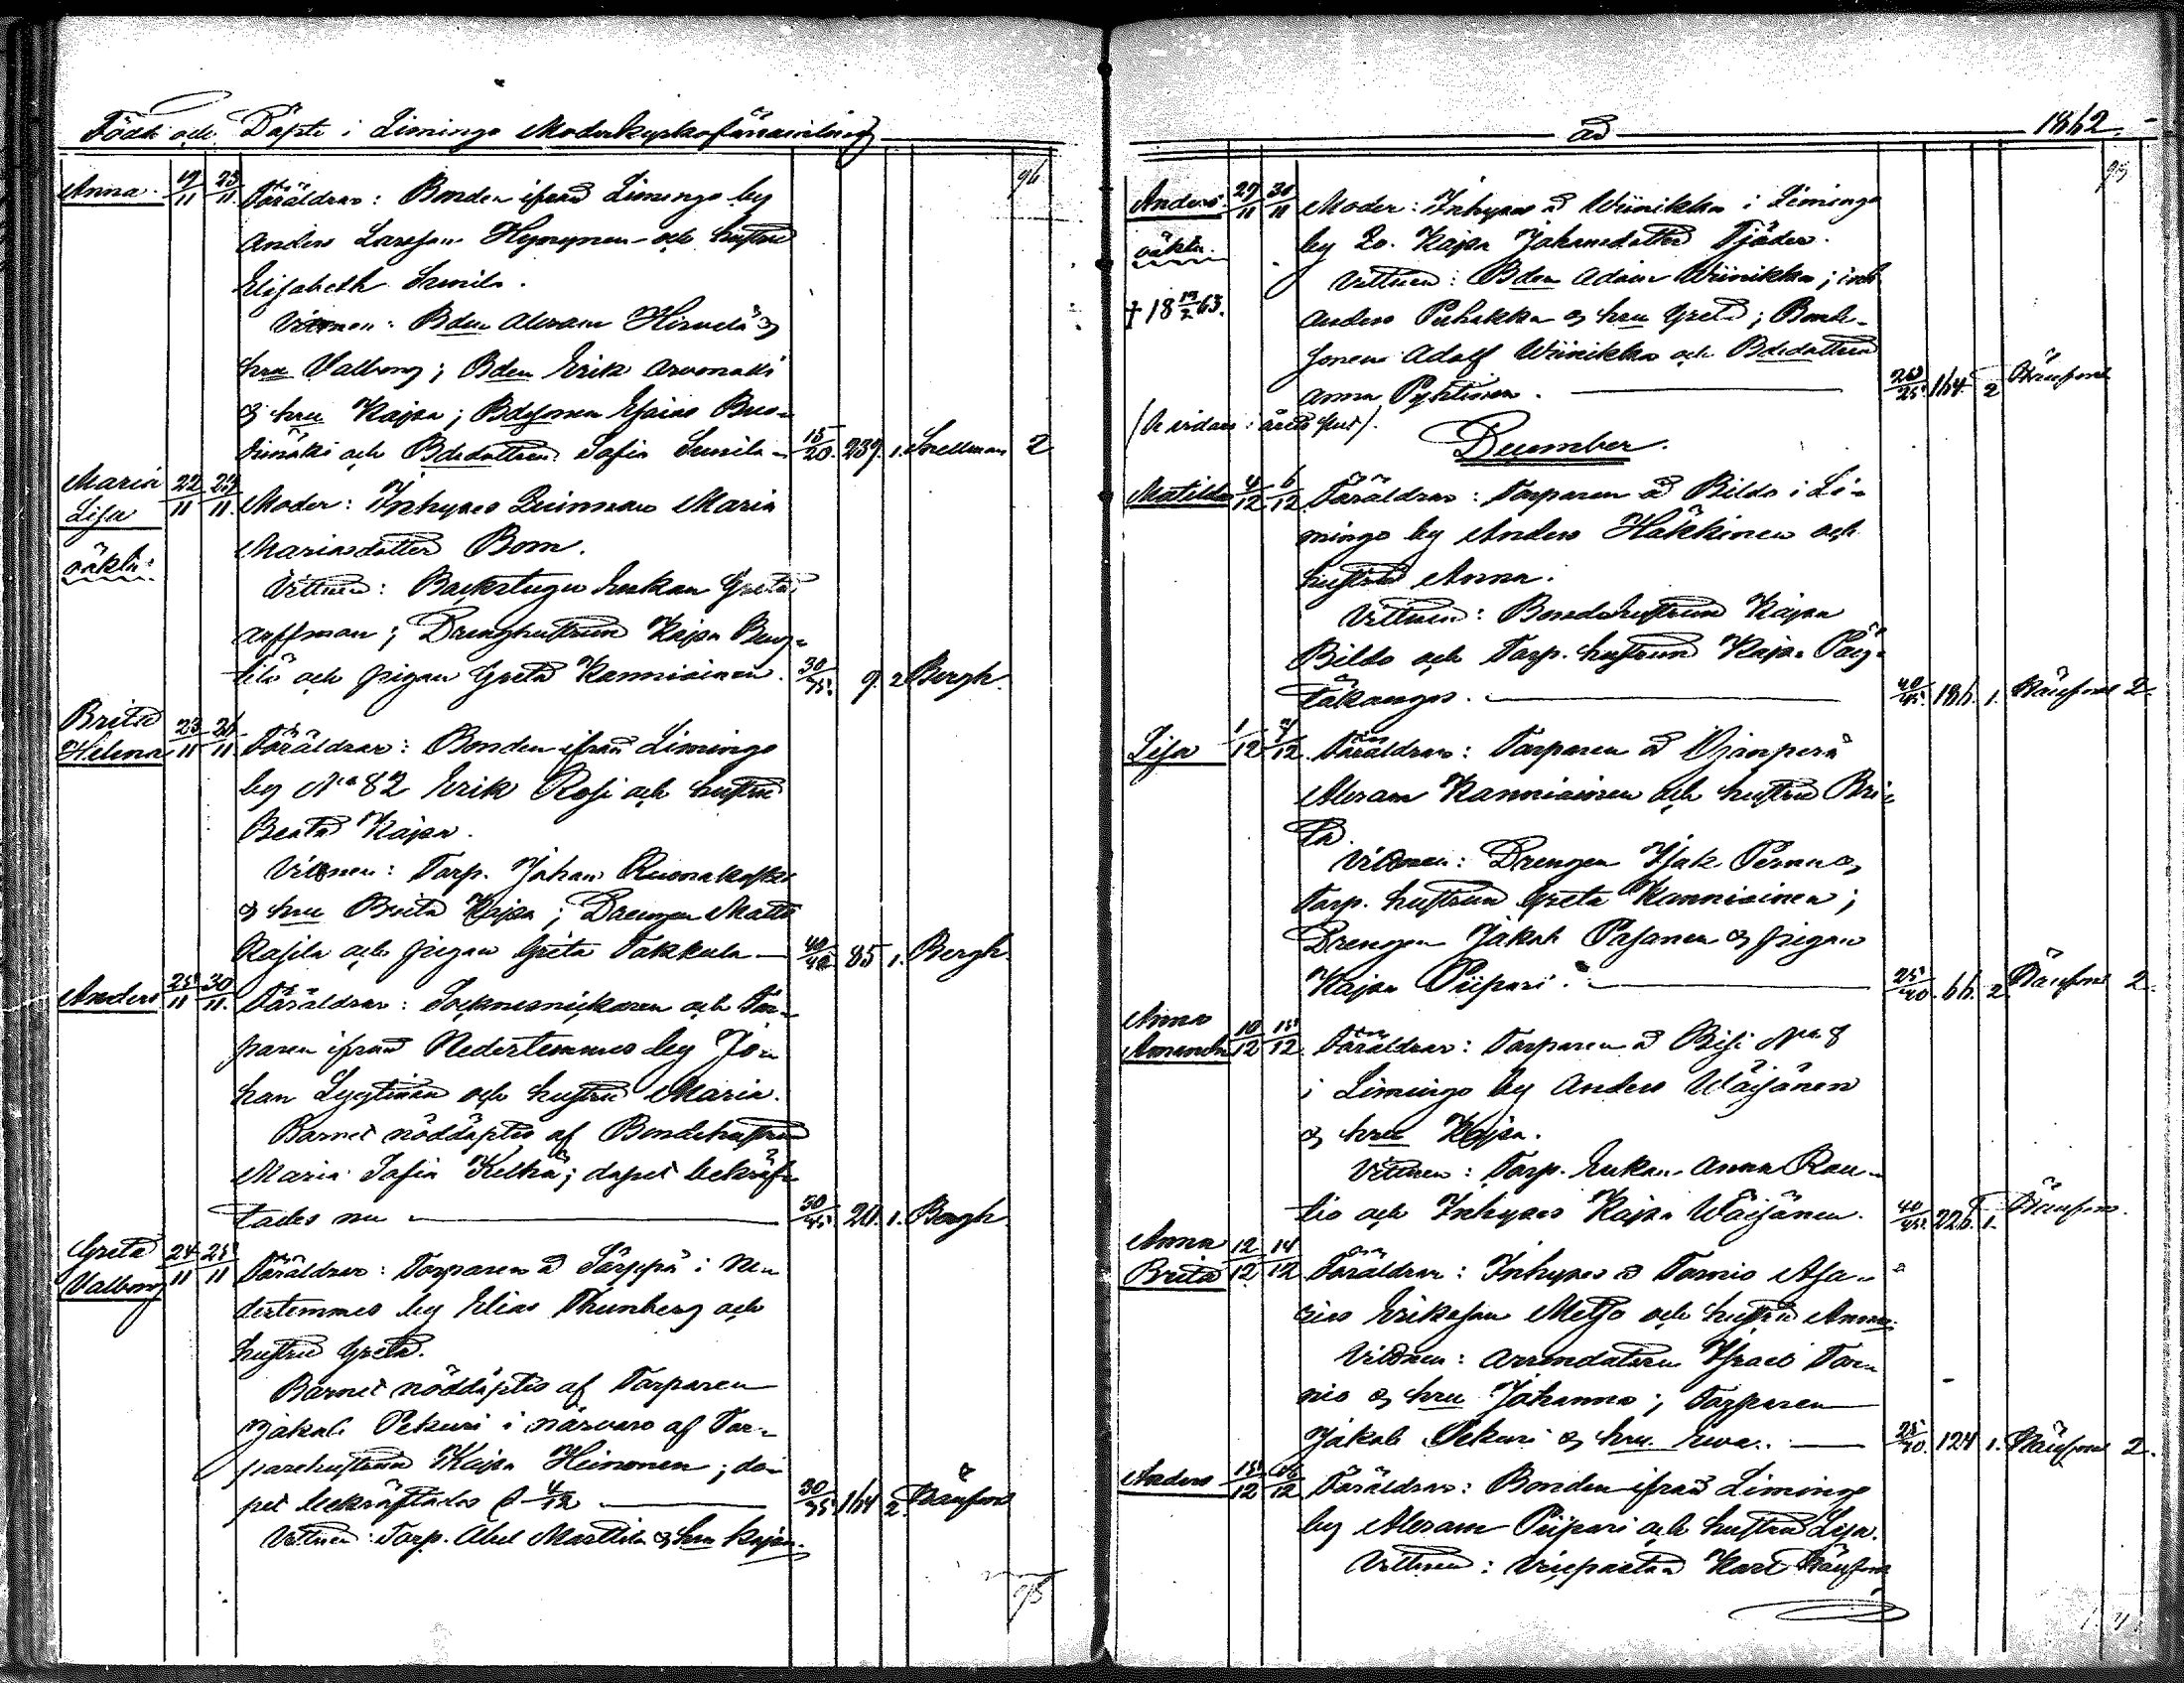 Födde och Döpte i Limingo Moderkyrkoförsamling
96
Anna. 19/11 23/11 Föräldrar: Bonden ifrån Limingo by
Anders Larsson Hyrynen och hustru
Elisabeth Sunila.
Vittnen: Bden Abram Hirvelä &
hru Valborg; Bden Erik Arvonaki
& hru Kajsa; Bdesonen Esaias
och Bdedottren Sofia Sunila 15/20. 239. 1. Snellman 2
Maria 22/11 23/11. Moder: Inhyses Qvinnan Maria
Lisa Mariasdotter Bom.
oäkta. Vittnen: Backstugu Enkan Greta
Arffman; Drenghustrun Kajsa
och pigan Greta Kanniainen. 30/35. 9. 2 Bergh.
Brita 23/11 26/11. Föräldrar: Bonden ifrån Limingo
Helena by No 82 Erik Rosi och hustru
Beata Kajsa.
Vittnen: Torp. Johan Ruonakoski
& hru Brita Kajsa; Drengen Matts
Rasila och pigan Greta Takkula 40/42. 85. 1. Bergh.
Anders 25/11 30/11. Föräldrar: Socknesnickaren och Tor-
paren ifrån Nedertemmes by Jo-
han Lyytinen och hustru Maria.
Barnet nöddöptes af Bondehustrun
Maria Sofia Keltka; dopet bekräf-
tades nu 50/45. 20. 1. Bergh
Greta 24/11 25/11 Föräldrar: Torparen å Särppä i Ne-
Valborg dertemmes by Elias Thunberg och
hustru Greta.
Barnet nöddöptes af Torparen
Jakob Pekuri i närvaro af Tor-
parehustrun Kajsa Heinonen; do-
pet bekräftades d 4/12 30/35. 164 2.
Vittnen: Torp. Abel Marttila & hru Kajsa.
95
år 1862.
95
Anders 27/11 30/11 Moder: Inhyses å Wiinikka i Limingo
oäkta. by Kajsa Johansdotter Tjäder.
† 18 19/2 63. Vittnen: Bden Adam Wiinikka;
Anders Puhakka & hru Greta; Bonde-
sonen Adolf Wiinikka och Bdedottren
Anna Pyktinen. 20/25. 164. 2
December.
Matilda 4/12 6/12 Föräldrar: Torparen å Bildo i Li-
mingo by Anders Häkkinen och
hustru Anna.
Vittnen: Bondehustrun Kajsa
Bildo och Torp. hustrun Kajsa Pöy-
täkangas. 40/45. 186. 1. 2.
Lisa 1/12 7/12. Föräldrar: Torparen å Ojanperä
Abram Kanniainen och hustru Bri-
ta.
Vittnen: Drengen Isak Pernu &
Torp. hustrun Greta Kanniainen;
Drengen Jakob Pasanen & pigan
Kajsa Piipari. 25/40. 66. 2. 2.
Anna 10/12 15/12. Föräldrar: Torparen å Bisi No. 8
Amanda i Limingo by Anders Wäisänen
& hru Kajsa.
Vittnen: Torp. Enkan Anna Rau-
tio och Inhyses Kajsa Wäisänen. 40/45. 226. 1.
Anna 12/12. 14/12 Föräldrar: Inhyses å Tornio Asa-
Brita rias Eriksson Metso och hustru Anna.
Vittnen: Arrendatoren Israel Tor-
nio & hru Johanna; Torparen
Jakob Pekuri & hru Eva. 25/30. 124 1. 2.
Anders 15/12 16/12 Föräldrar: Bonden ifrån Limingo
by Abram Piipari och hustru Lisa.
Vittnen: Vicepastorn Karl